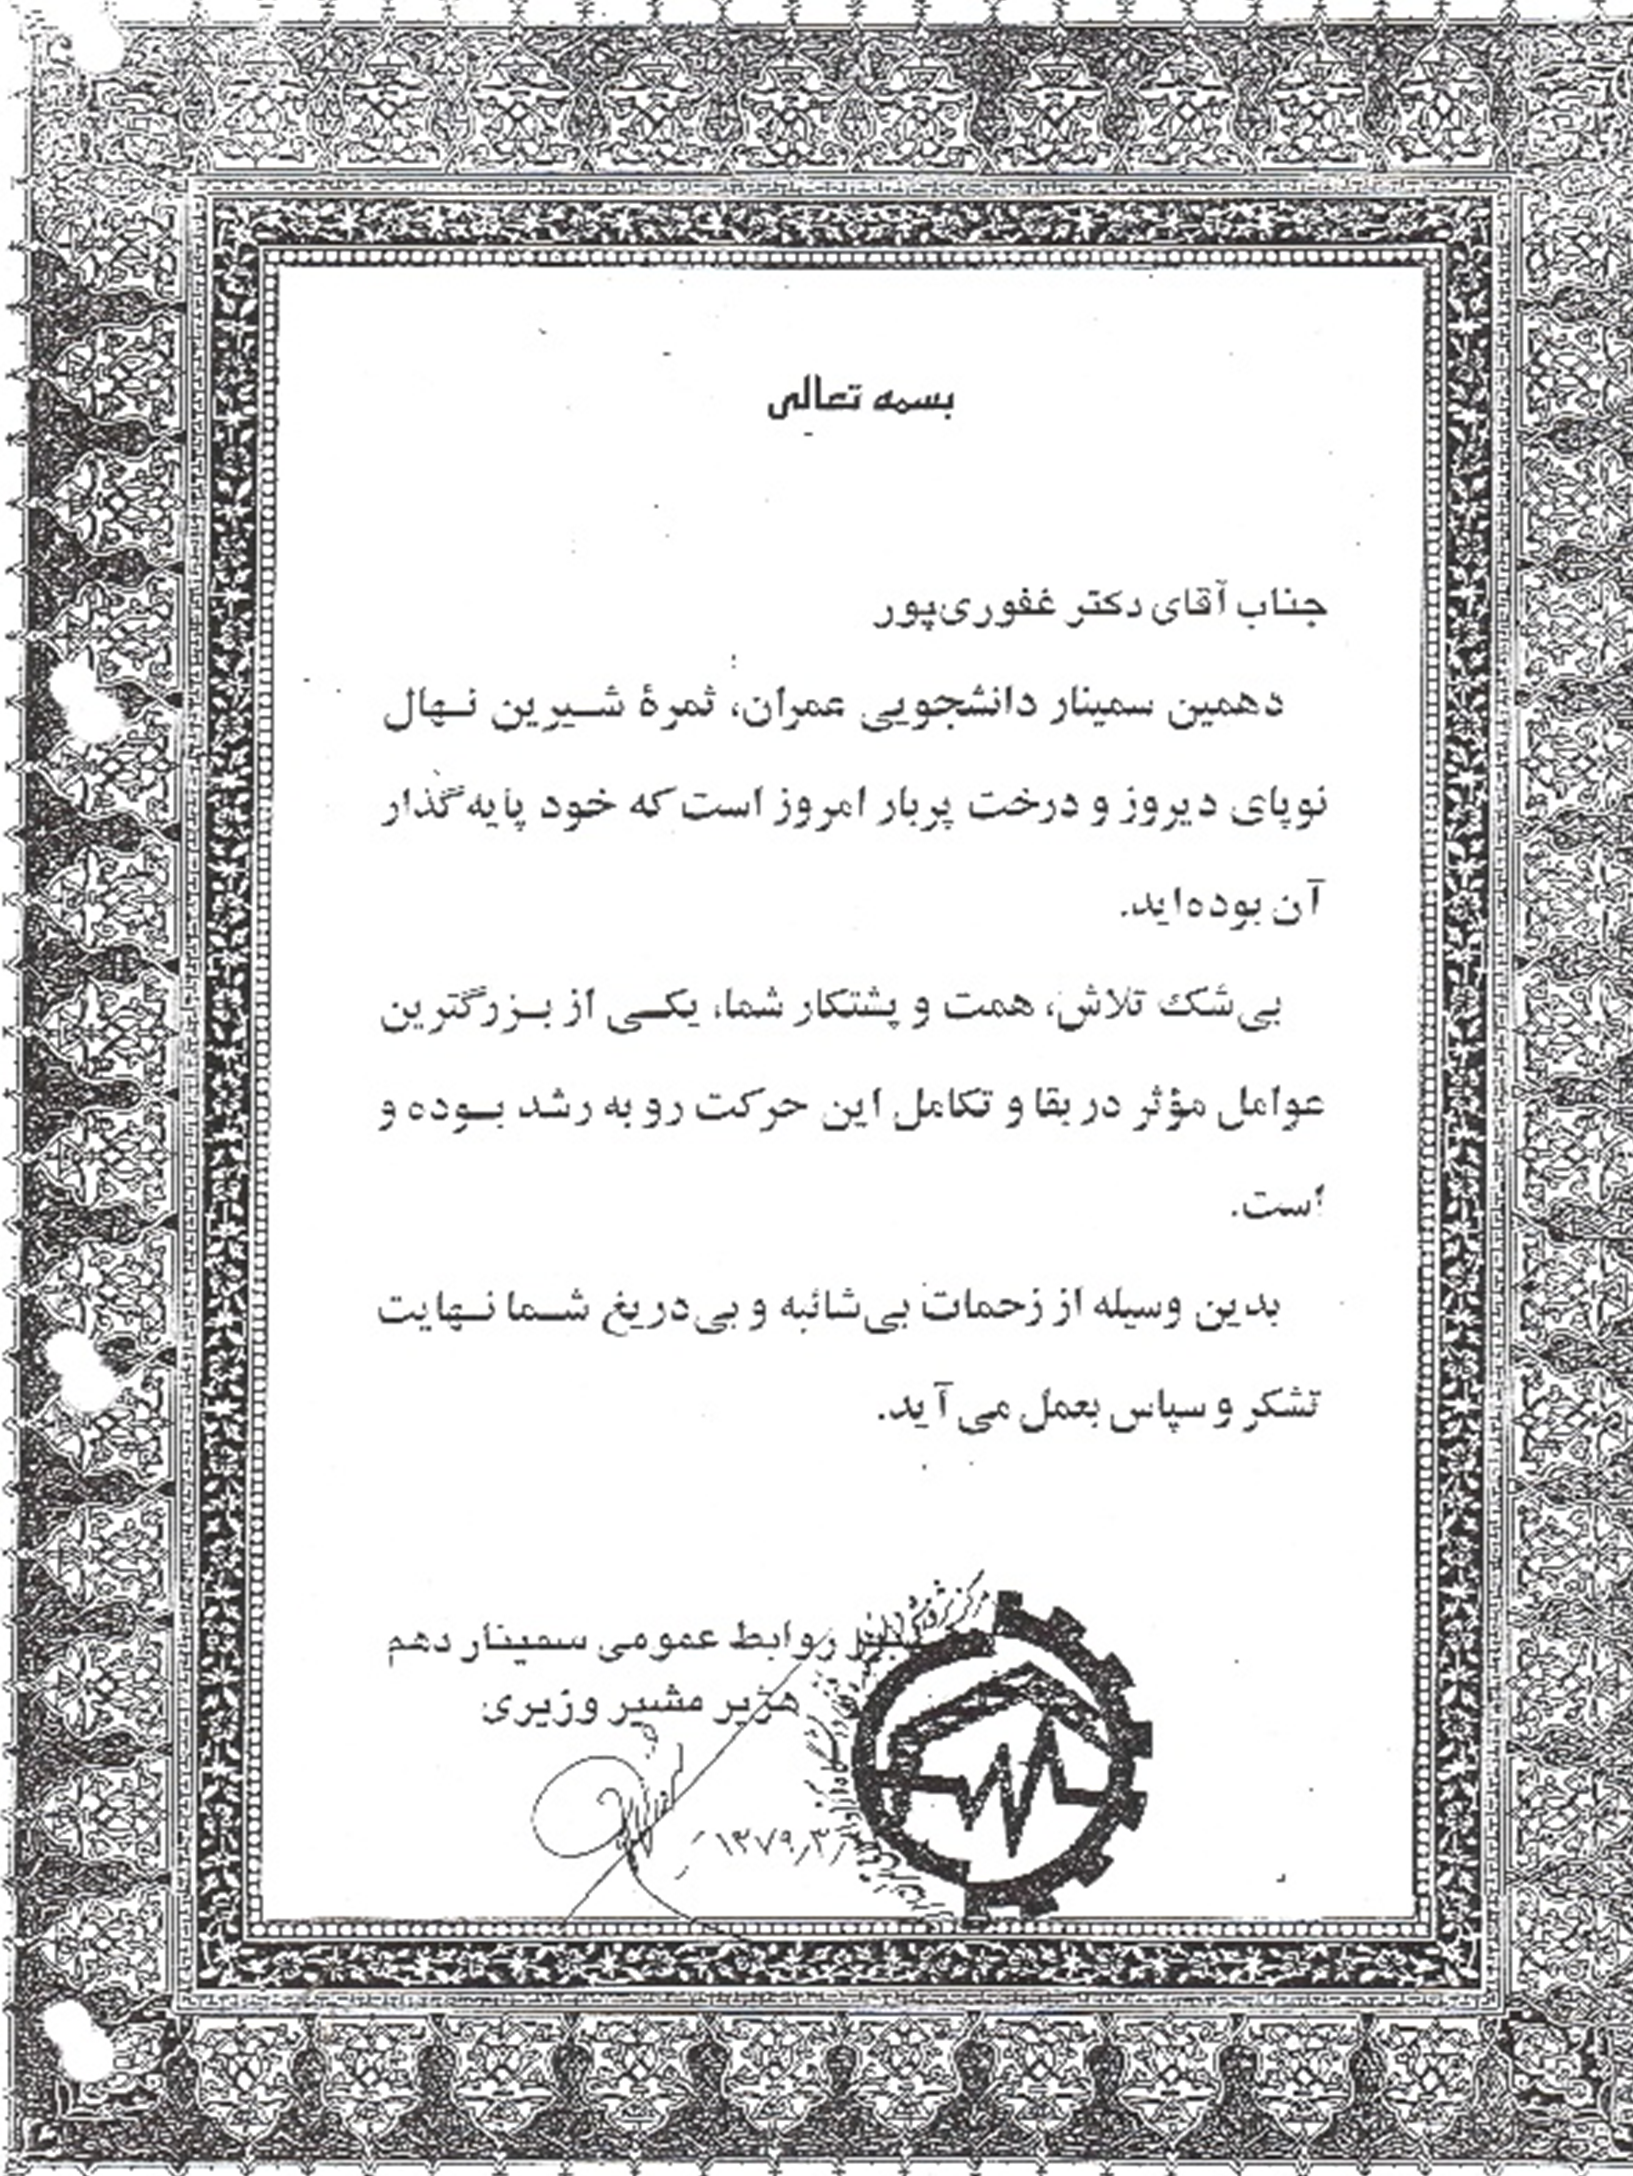 بسمه تعالی
جناب آقای دکتر غفوری‌پور
دهمین سمینار دانشجویی عمران، ثمرهٔ شیرین نهال
نوپای دیروز و درخت پربار امروز است که خود پایه‌گذار
آن بوده‌اید.
بی‌شک تلاش، همت و پشتکار شما، یکی از بزرگترین
عوامل مؤثر در بقا و تکامل این حرکت رو به رشد بوده و
است.
بدین وسیله از زحمات بی‌شائبه و بی‌دریغ شما نهایت
تشکر و سپاس بعمل می‌آید.
روابط عمومی سمینار دهم
هژیر مشیر وزیری